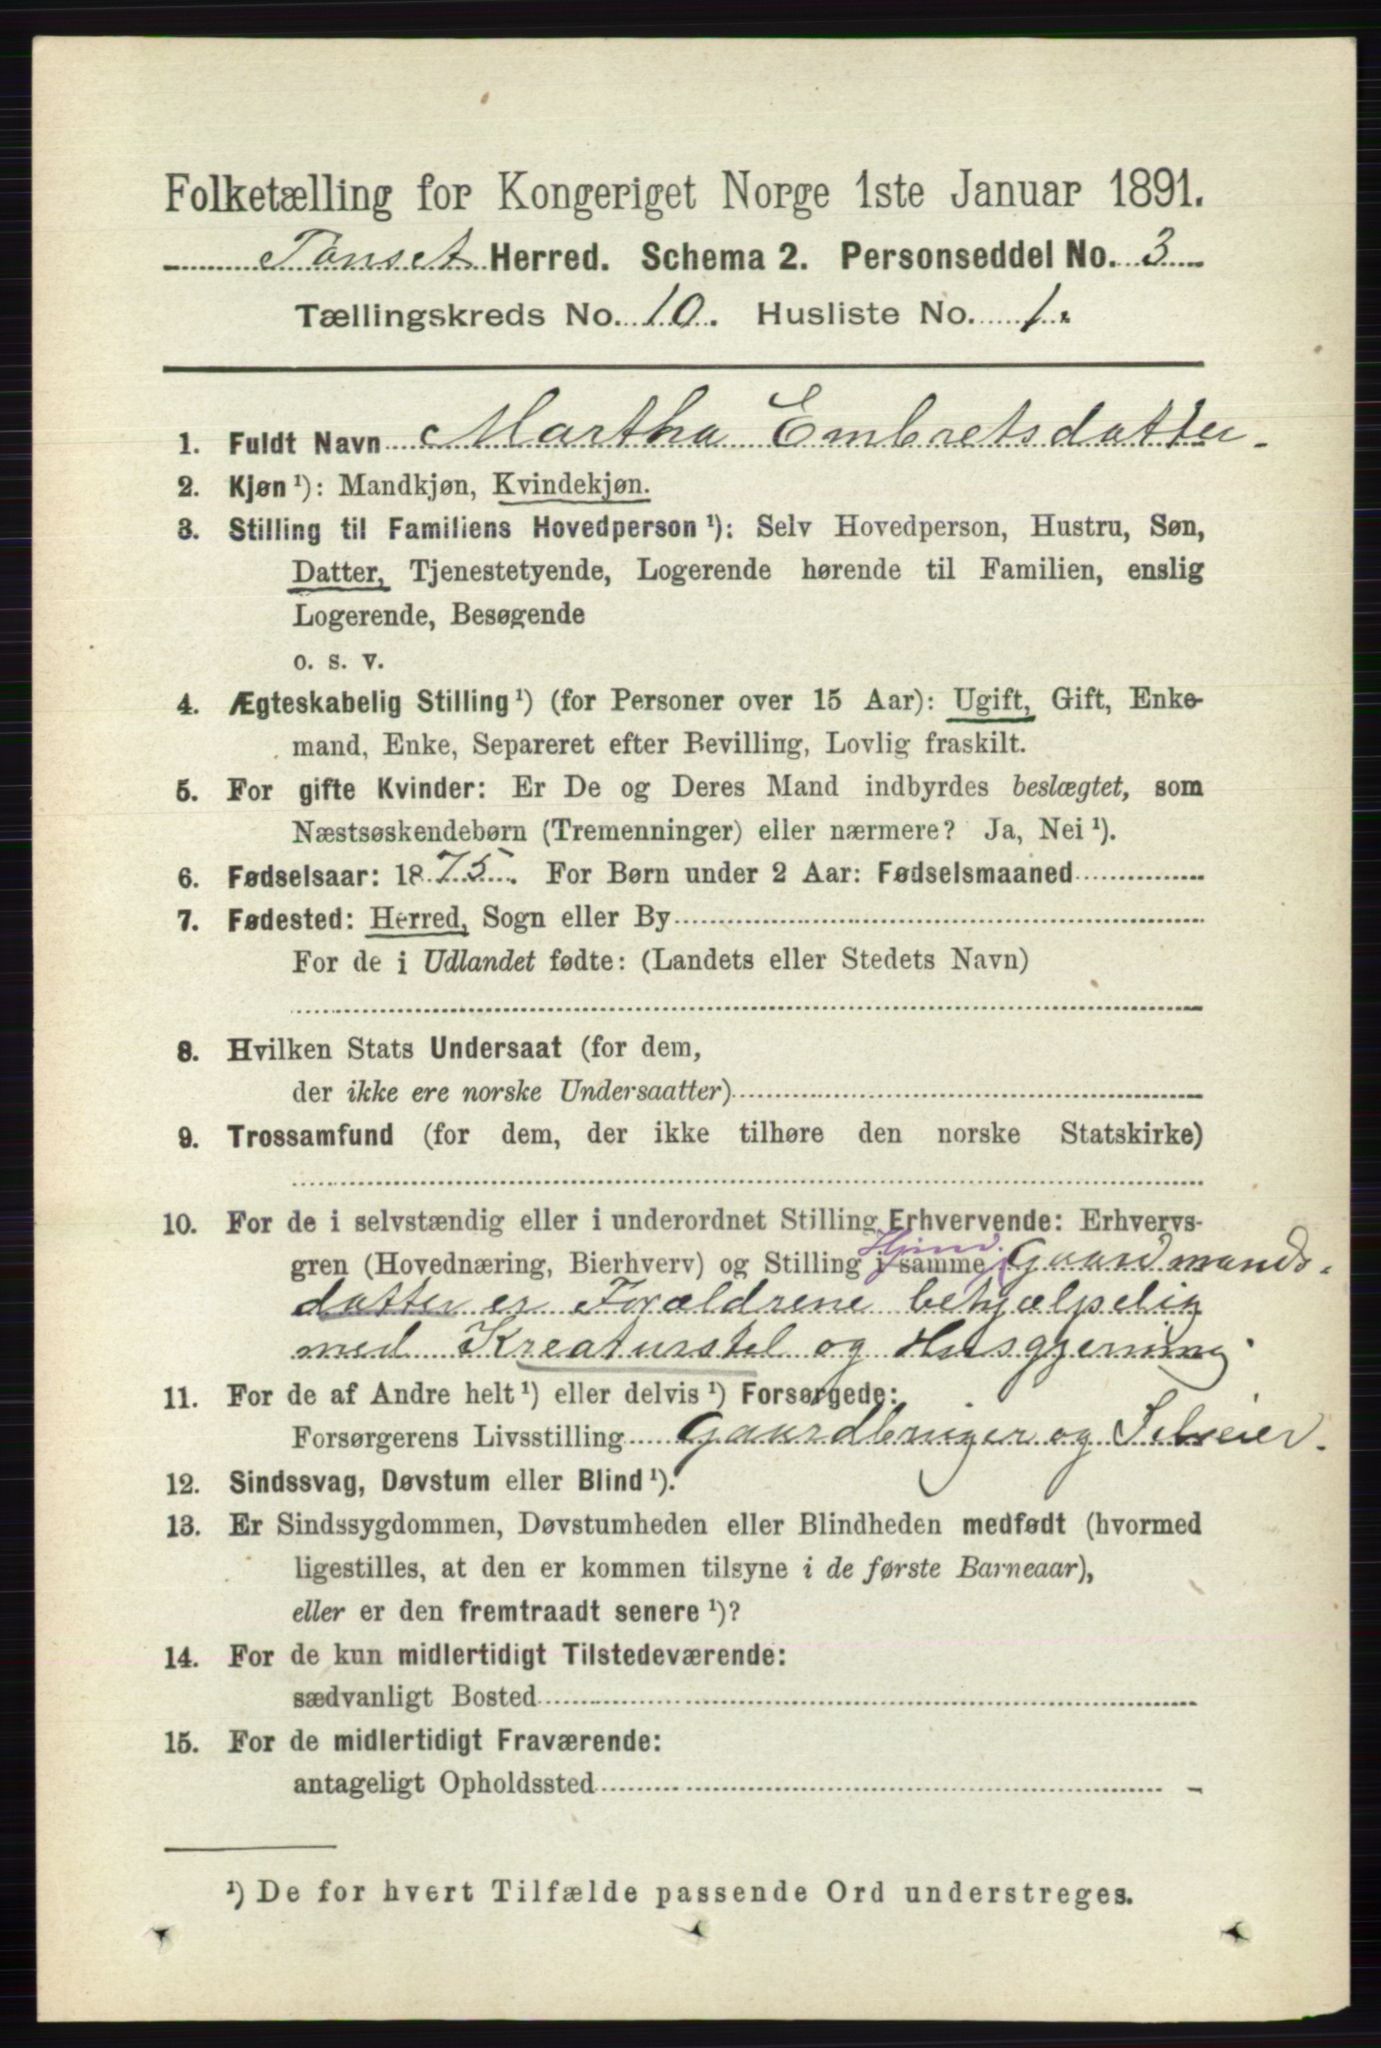 Folketælling for Kongeriget Norge 1ste Januar 1891.
Tønset Herred. Schema 2. Personseddel No. 3
Tællingskreds No. 10. Husliste No. 1.
1. Fuldt Navn Martha Embretsdatter.
2. Kjøn ¹): Mandkjøn, Kvindekjøn.
3. Stilling til Familiens Hovedperson ¹): Selv Hovedperson, Hustru, Søn,
Datter, Tjenestetyende, Logerende hørende til Familien, enslig
Logerende, Besøgende
o. s. v.
4. Ægteskabelig Stilling ¹) (for Personer over 15 Aar): Ugift, Gift, Enke-
mand, Enke, Separeret efter Bevilling, Lovlig fraskilt.
5. For gifte Kvinder: Er De og Deres Mand indbyrdes beslægtet, som
Næstsøskendebørn (Tremenninger) eller nærmere? Ja, Nei ¹).
6. Fødselsaar: 1875. For Børn under 2 Aar: Fødselsmaaned
7. Fødested: Herred, Sogn eller By
For de i Udlandet fødte: (Landets eller Stedets Navn)
8. Hvilken Stats Undersaat (for dem,
der ikke ere norske Undersaatter)
9. Trossamfund (for dem, der ikke tilhøre den norske Statskirke)
10. For de i selvstændig eller i underordnet Stilling Erhvervende: Erhvervs-
gren (Hovednæring, Bierhverv) og Stilling i samme Gaardmands-
datter er Forældrene behjælpelig
med Kreaturstel og Husgjerning
11. For de af Andre helt ¹) eller delvis ¹) Forsørgede:
Forsørgerens Livsstilling Gaardbruger og Selveier.
12. Sindssvag, Døvstum eller Blind ¹).
13. Er Sindssygdommen, Døvstumheden eller Blindheden medfødt (hvormed
ligestilles, at den er kommen tilsyne i de første Barneaar),
eller er den fremtraadt senere ¹)?
14. For de kun midlertidigt Tilstedeværende:
sædvanligt Bosted
15. For de midlertidigt Fraværende:
antageligt Opholdssted
¹) De for hvert Tilfælde passende Ord understreges.